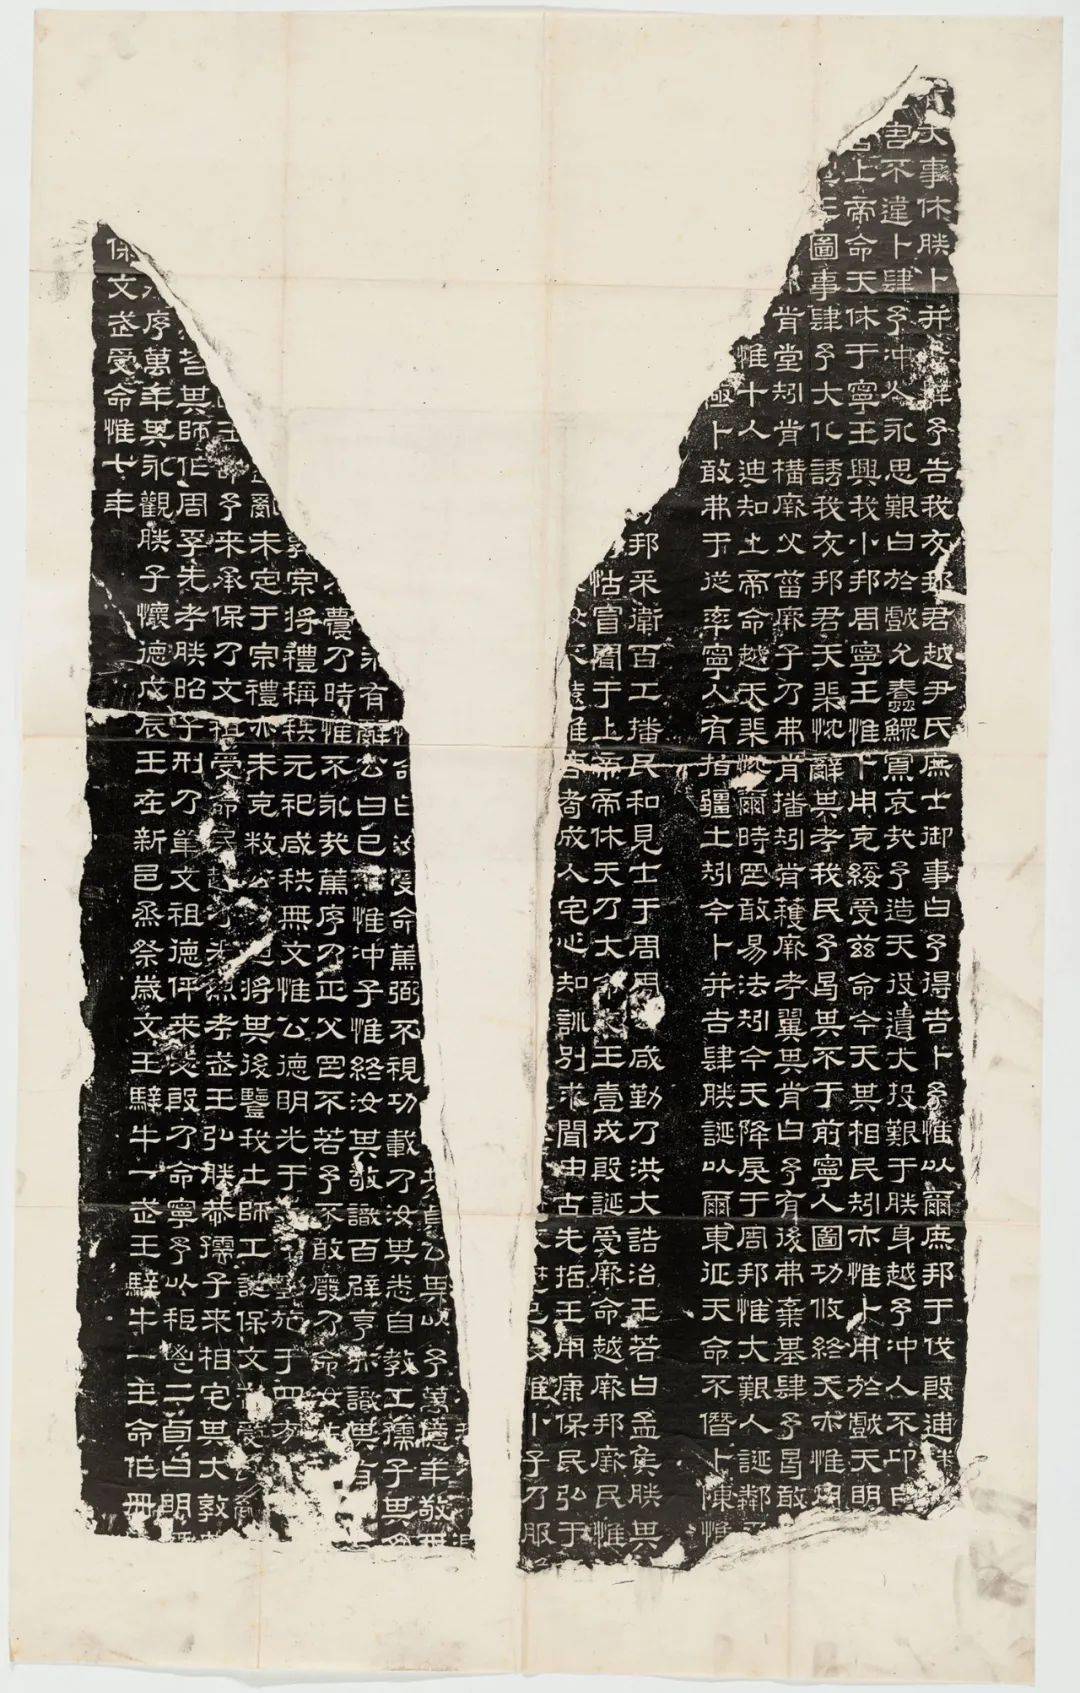 大事休朕卜并告我友邦君越尹氏庶士御事曰予得吉卜予惟以爾庶邦于伐殷逋
害不違卜肆予沖人永思艱曰於戲允蠢鰥寡哀哉予造天役遺大投艱于朕身越予沖人不卬自
上帝命天休于寧王興我小邦周寧王惟卜用克綏受茲命今天其相民矧亦惟卜用於戲天明
王圖事肆予大化誘我友邦君天棐忱辭其孝我民予曷其不于前寧人圖功攸終天亦惟用
肯堂矧肯構厥父菑厥子乃弗肯播矧肯穫厥考翼其肯曰予有後弗棄基肆予曷敢
惟十人迪知上帝命越天棐忱爾時罔敢易法矧今天降戾于周邦惟大艱人誕鄰
極卜敢弗于從率寧人有指疆土矧今卜并吉肆朕誕以爾東征天命不僭卜陳惟
邦采衛百工播民和見士于周周咸勤乃洪大誥治王若曰孟侯朕其
怙冒聞于上帝帝休天乃大王壹戎殷誕受厥命越厥邦厥民惟
遠惟耇成人宅心知訓別求聞由古先哲王用康保民弘于
惟小子乃服
公其以予萬億年敬
曰汝受命篤弼丕視功載乃汝其悉自教工孺子其
有辭公曰已惟沖子惟終汝其敬識百辟亨亦識其有
乃時惟不永哉篤序乃正父罔不若予不敢廢乃命汝
宗將禮稱秩元祀咸秩無文惟公德明光于施于四方
亂未定于宗禮亦未克敉公將其後監我士師工誕保文受
予來承保乃文祖受命民越乃光烈考武王弘朕恭孺子來相宅其大惇
者其師作周孚先孝朕昭子刑乃單文祖德伻來毖殷乃命寧予以秬鬯二卣曰明
序萬年其永觀朕子懷德戊辰王在新邑烝祭歲文王騂牛一武王騂牛一王命作冊
保文武受命惟七年